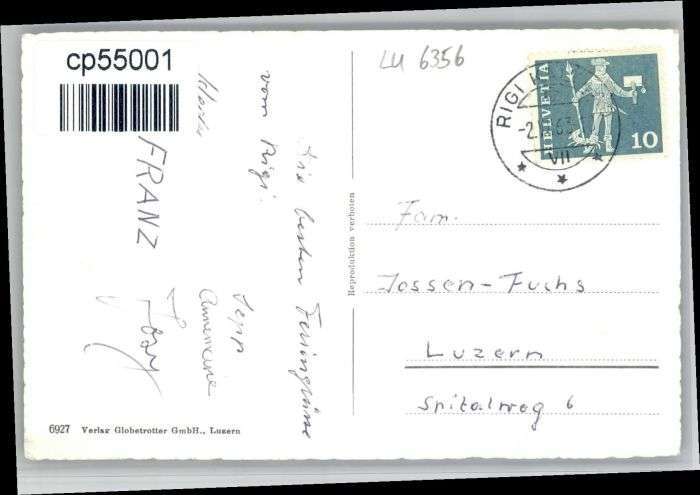 cp55001
LU 6356
HELVETIA
10
RIGI
-2.
VII
Die besten Feriengrüsse
vom Rigi.
Sepp
Annemarie
FRANZ
Josy
Reproduktion verboten
Fam.
Jossen-Fuchs
Luzern
Spitalweg 6
6927 Verlag Globetrotter GmbH., Luzern